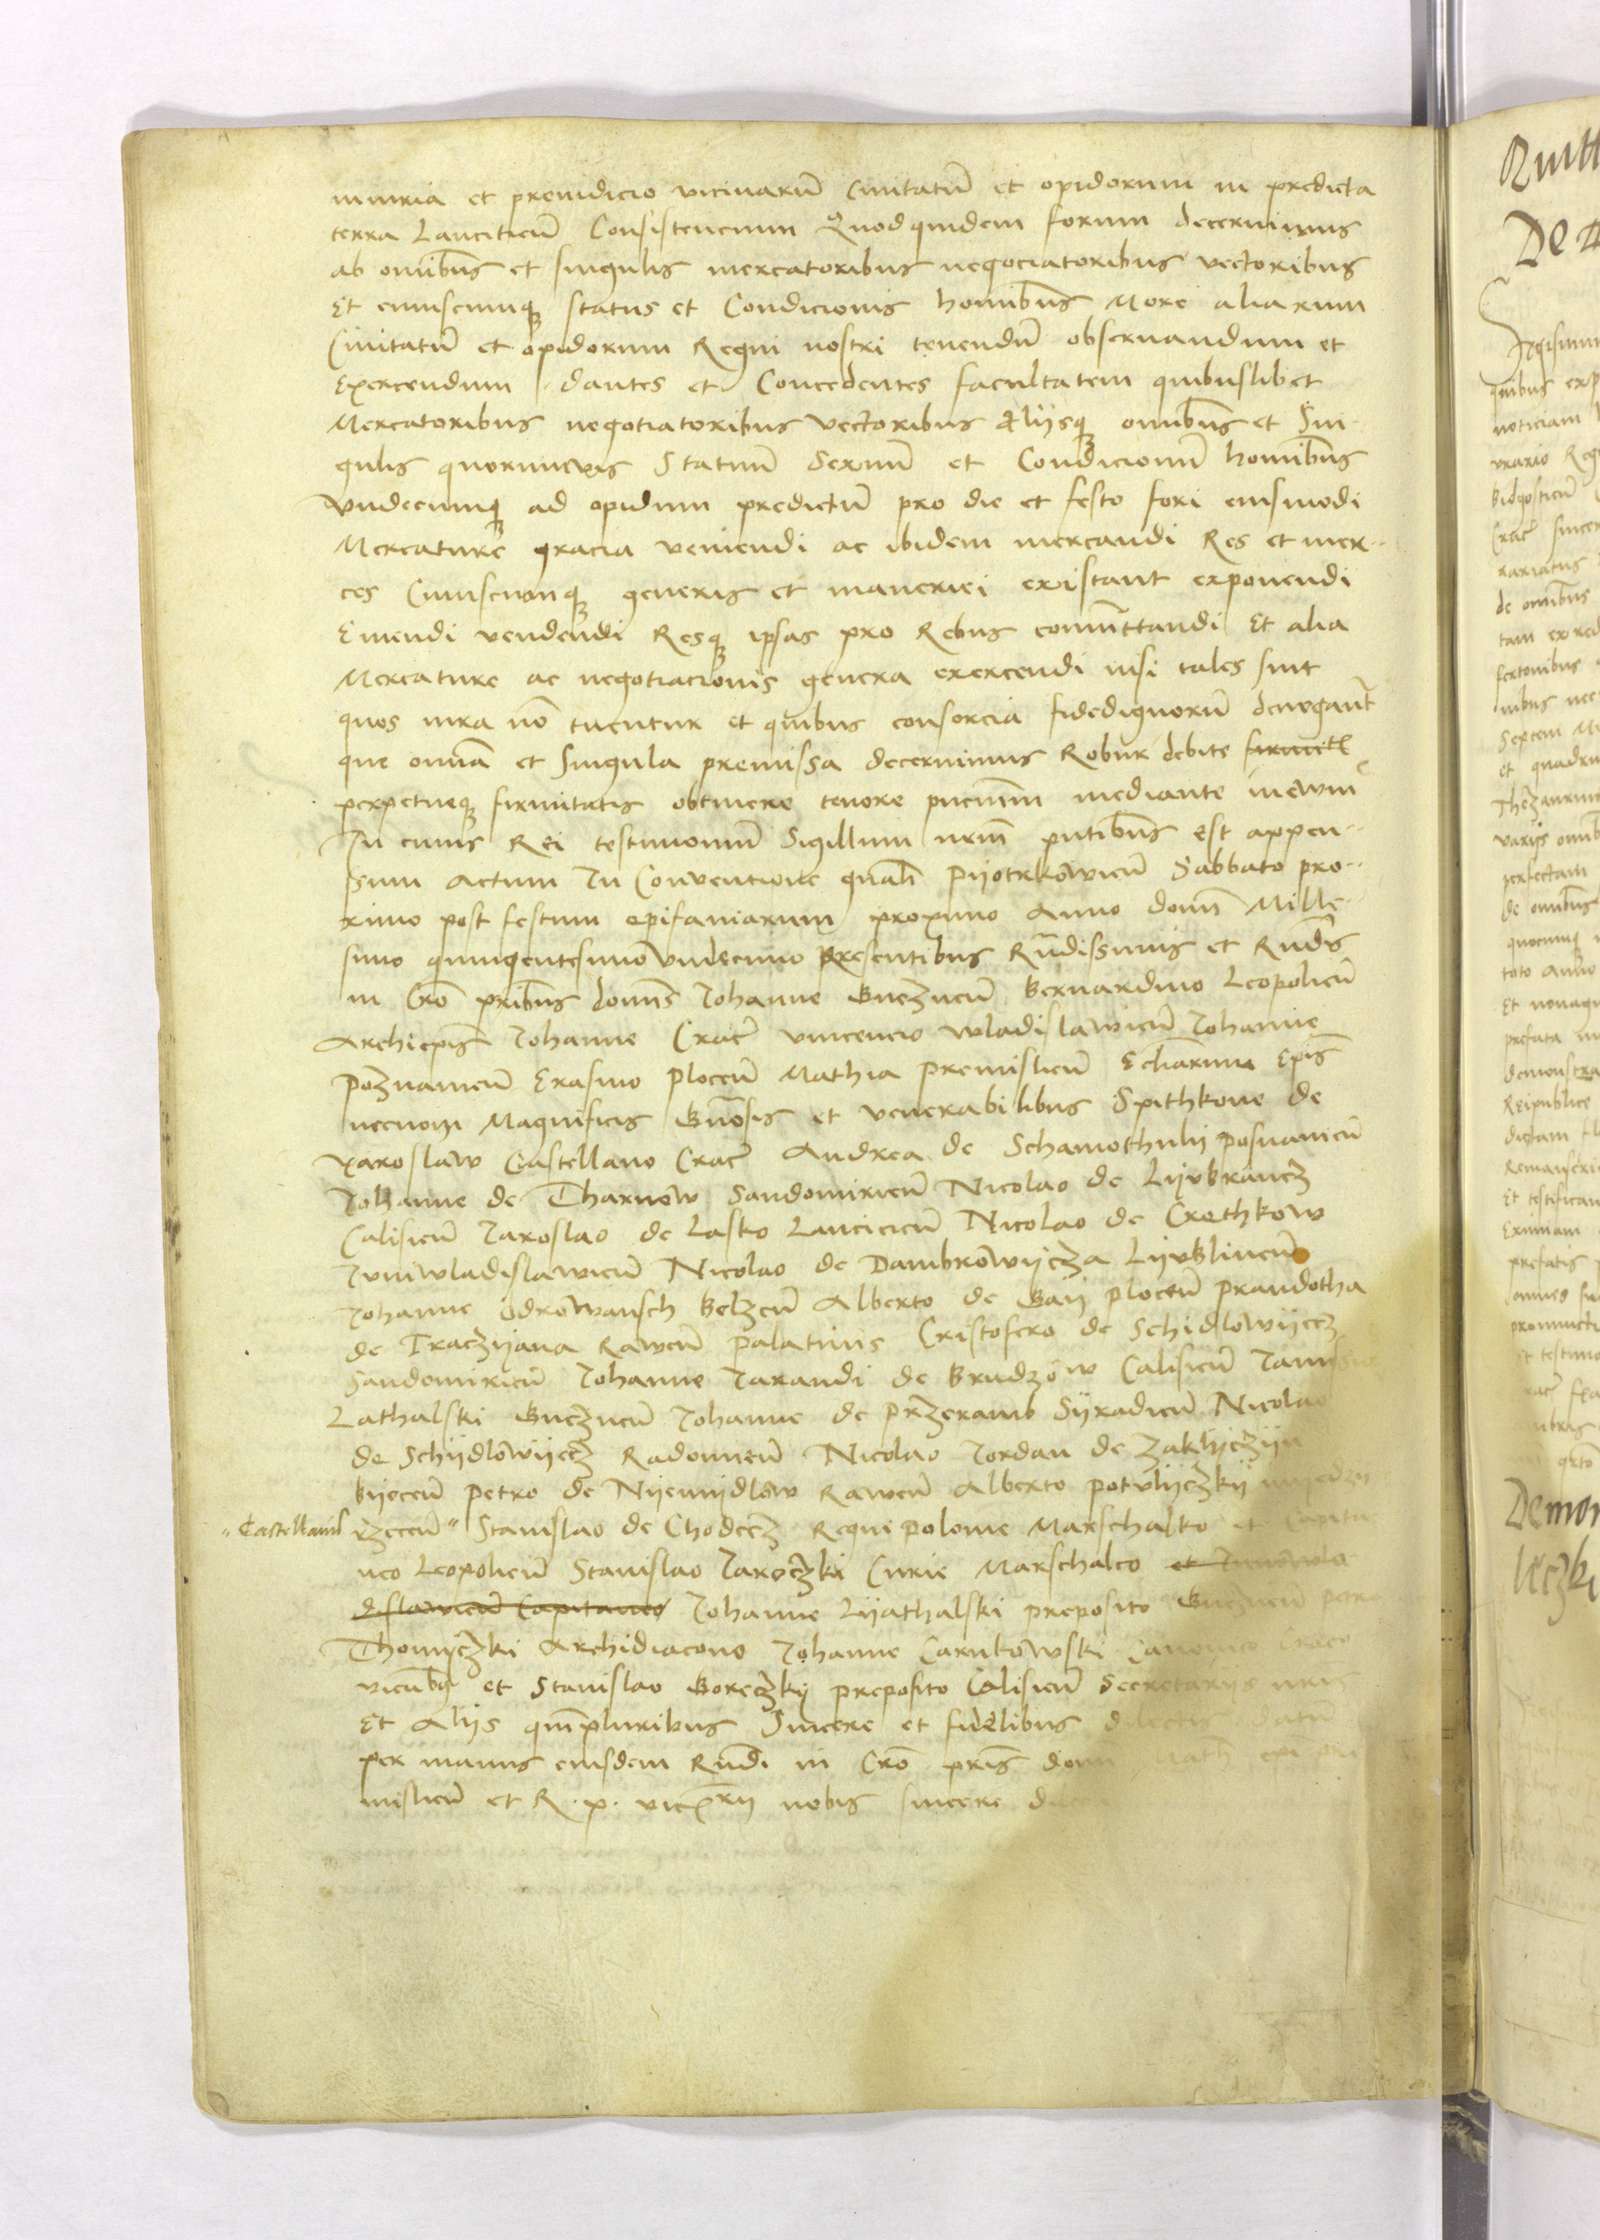 iniuria et preiudicio vicinarū Civitatū et opidorum in predicta
terra Lancicieñ Consistencium Quodquidem forum decernimus
ab omībus et singulis mercatoribus negociatoribus vectoribus
Et cuiuscumqȝ status et Condicionis homībus More aliarum
Civitatū et opidorum Regni nostri tenendū observandum et
Exercendum dantes et Concedentes facultatem quibuslibet
Mercatoribus negotiatoribus vectoribus Aliisqȝ omībus et Sin-
gulis quorumvis Statuū Sexuū et Condicionū homībus
vndecumqȝ ad opidum predictū pro die et festo fori eiusmodi
Mercature gracia veniendi ac ibidem mercandi Res et mer-
ces Cuiuscunqȝ generis et maneriei existant exponendi
Emendi vendendi Resqȝ ipsas pro Rebus comūttandi Et alia
Mercature ac negotiacionis genera exercendi nisi tales sint
quos iura nō tuentur et quibus consorcia fidedignorū denegant
que omīa et singula premissa decernimus Robur debite
perpetueqȝ firmitatis obtinere tenore pñcium mediante inewm
In cuius Rei testimoniū Sigillum nrm̄ pñtibus est appen-
sum Actum In Conventione gñali Pyotrkowieñ Sabbato pro-
ximo post festum epifaniarum proximo Anno domī Mille-
simo quingentesimo vndecimo presentibus Rñdissimis et Rñdis
in Cro pribus domīs Iohanne Gnezneñ Bernardino Leopolieñ
Archiepīs Iohanne Crac̄ vincencio wladislawieñ Iohanne
Poznanieñ Erasmo Ploceñ Mathia Premislieñ Ecl̄iarum Epīs
necnon Magnificis Gn̄osis et venerabilibus Spithkone de
yaroslaw Castellano Crac̄ Andrea de Schamothuli posnanieñ
Iohanne de Tharnow Sandomirieñ Nicolao de Lyvbrancz
Calisieñ Iaroslao de Lasko Lancicieñ Nicolao de Crethkow
Iuniwladislawieñ Nicolao de Dambrowycza Lyvblineñ
Iohanne Odrowansch Belzeñ Alberto de Gay Ploceñ Prandotha
de Traczyana Raweñ Palatinis Cristofero de Schidlowyecz
Sandomirieñ Iohanne Iarandi de Brudzow Calisieñ
Lathalski Gnezneñ Iohanne de przeramb Syradieñ Nicolao
de Schydlowyecz Radomieñ Nicolao Iordan de zaklyczyn
byeceñ Petro de Nyemyglow Raweñ Alberto potulyczkij myedzy
"Castellanis izeceñ" Stanislao de Chodecz Regni polonie Marschalko et Capita-
neo Leopolieñ Stanislao Iaroczki Curie Marschalco et Iuniwla-
dislawieñ Capitaneo Iohanne Lyathalski preposito Gnezneñ petro
Thomyczki Archidiacono Iohanne Carnkowski Canonico Craco
vieñbȝ et Stanislao Goreczky preposito Calisieñ Secretariis nris
Et Aliis qm̄pluribus Sincere et fidelibus dilectis datū
per manus eiusdem Rñdi in Cro pris domī Math epī pre-
mislieñ et R. p. vicȝrii nobis sincere